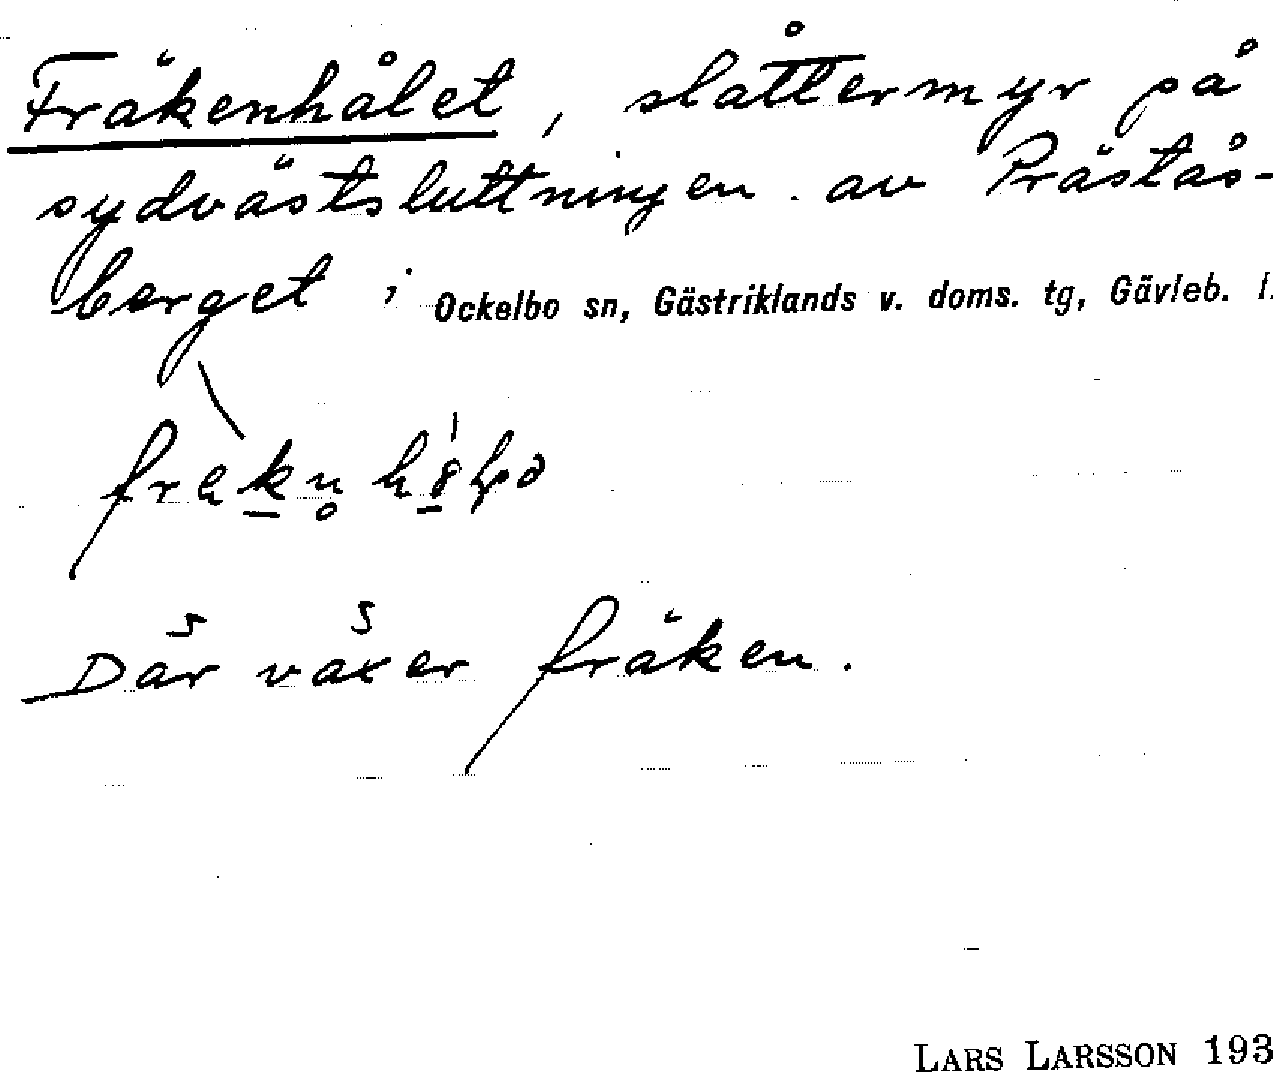 Fräkenhålet, slåttermyr på
sydvästsluttningen av Prästås-
berget i Ockelbo sn, Gästriklands v. doms. tg, Gävleb. l.
Där växer fräken.
LARS LARSSON 193